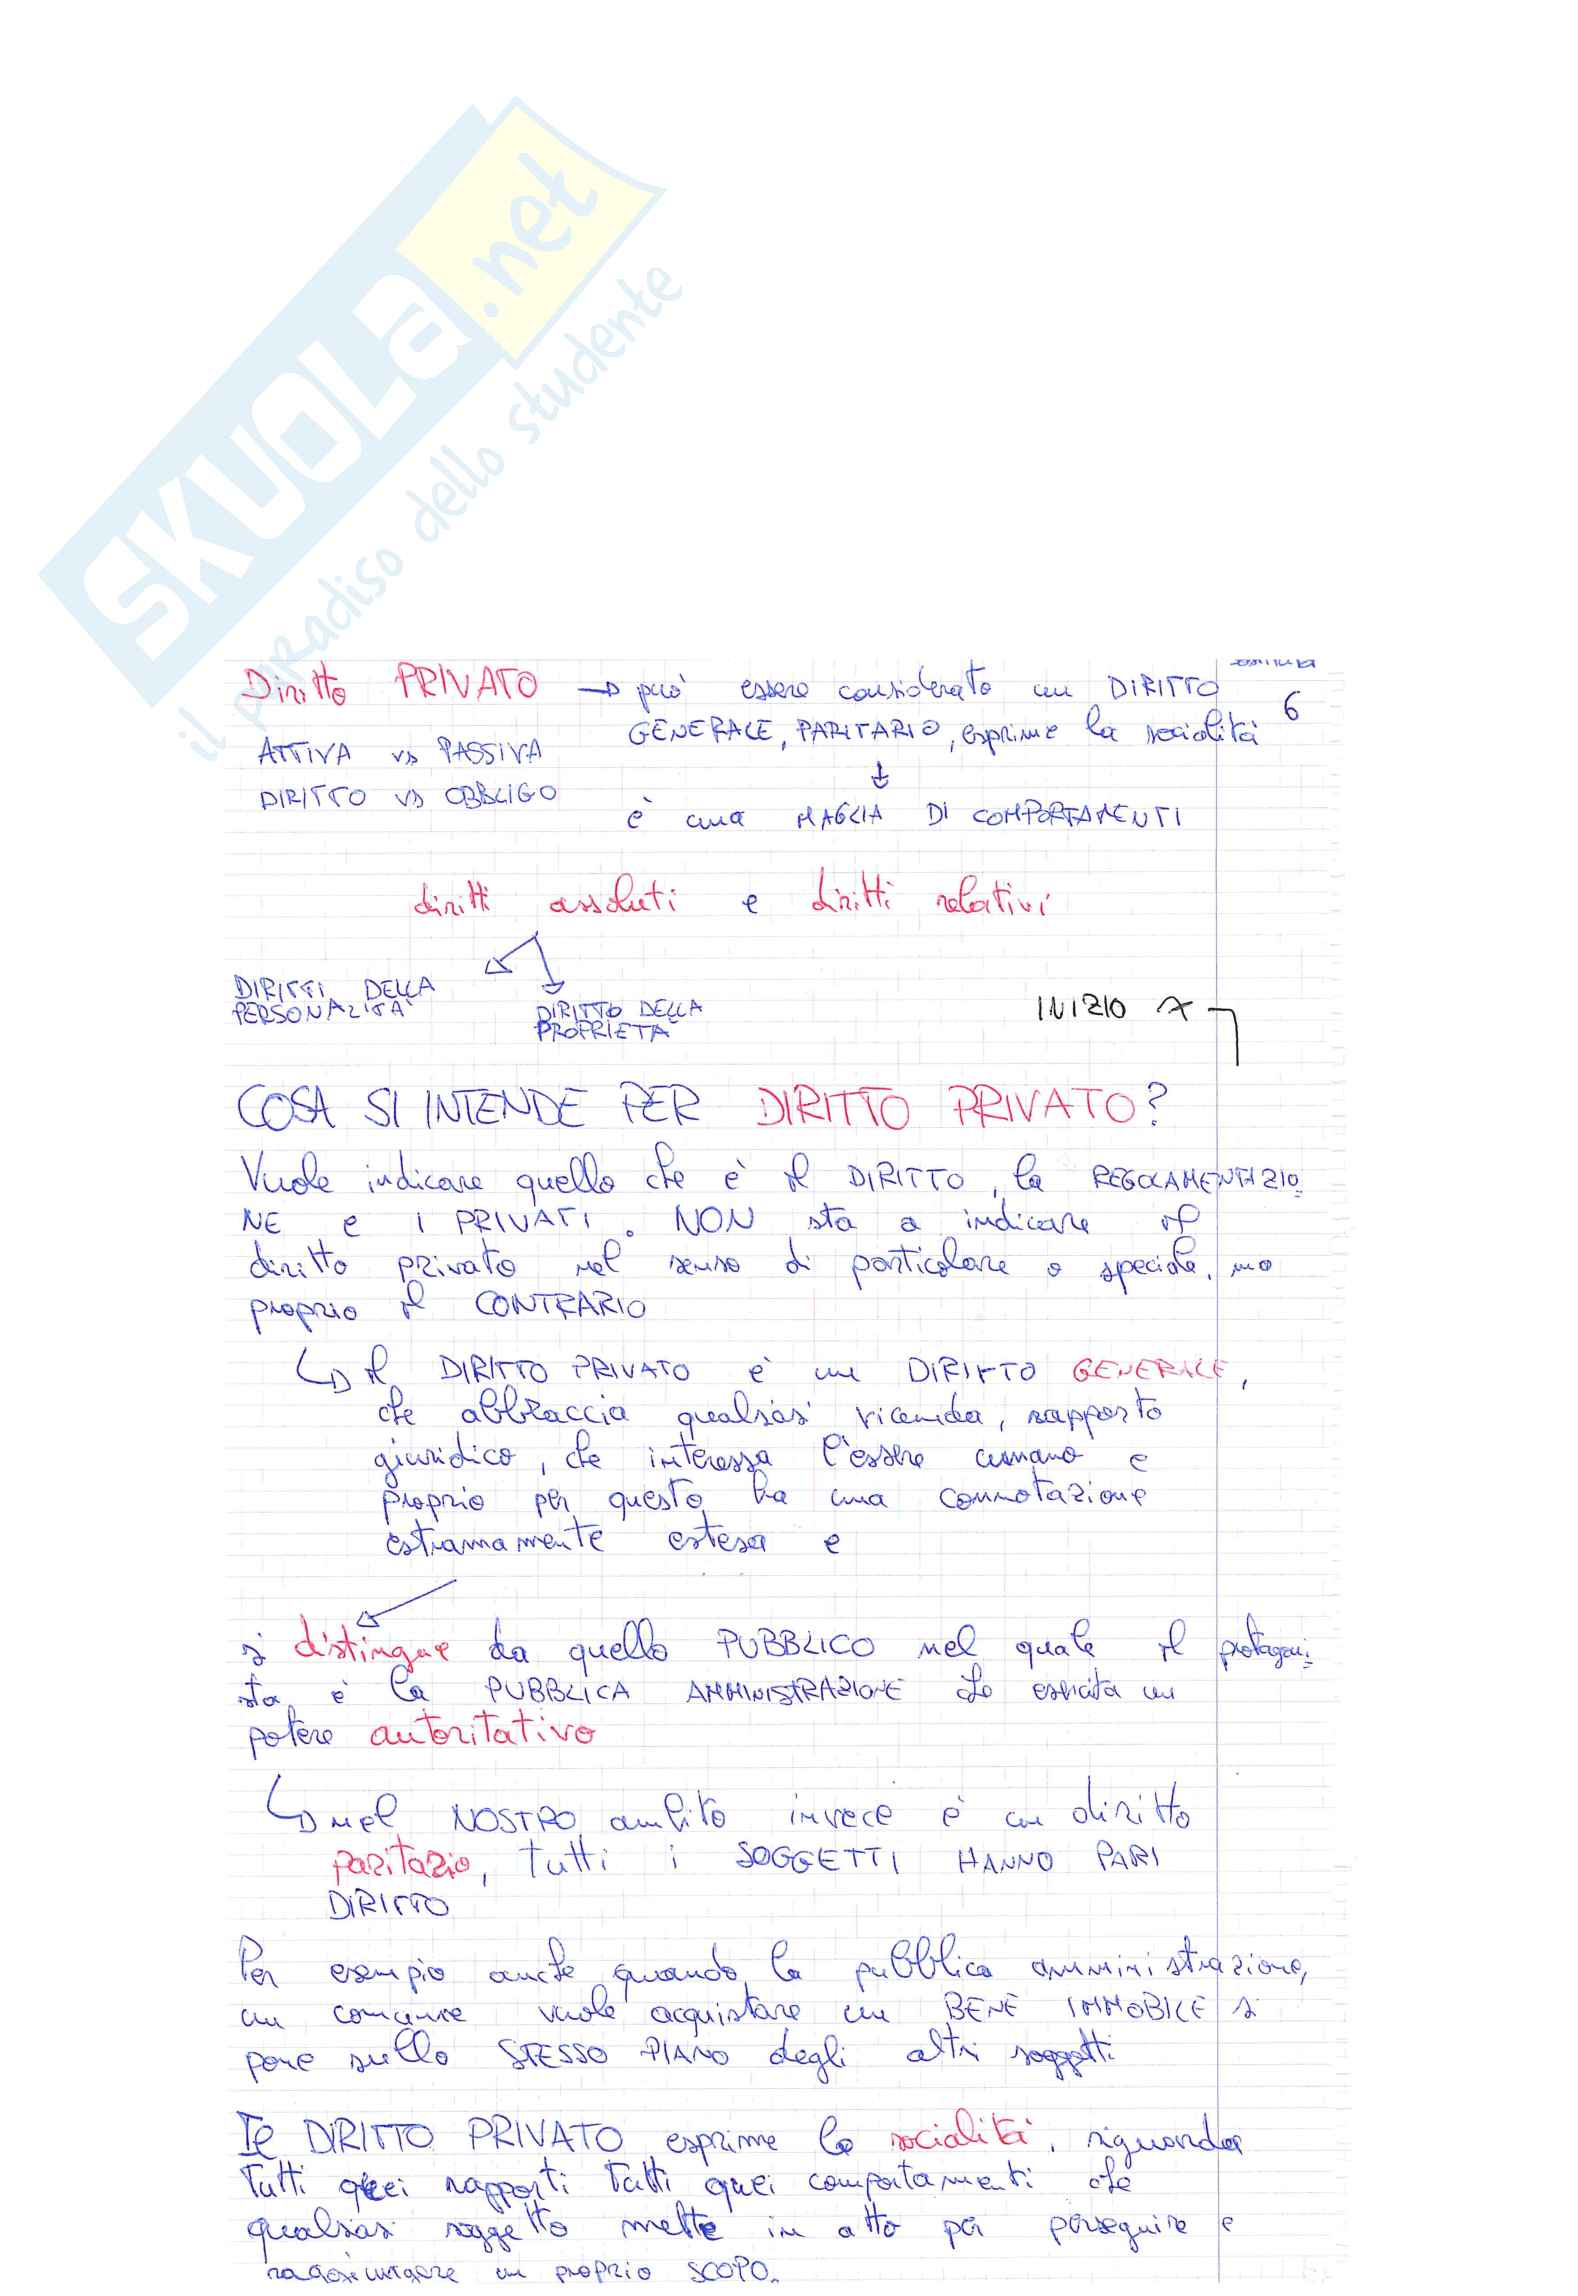 SKUOLA.net
il paradiso dello studente
Diritto PRIVATO → può essere considerato un DIRITTO
GENERALE, PARITARIO, esprime la socialità
6
ATTIVA vs PASSIVA
DIRITTO vs OBBLIGO
↓
è una MAGLIA DI COMPORTAMENTI
diritti assoluti e diritti relativi
DIRITTI DELLA
PERSONALITÀ
DIRITTO DELLA
PROPRIETÀ
INIZIO
COSA SI INTENDE PER DIRITTO PRIVATO?
Vuole indicare quello che è il DIRITTO, la REGOLAMENTAZIO
NE e i PRIVATI. NON sta a indicare il
diritto privato nel senso di particolare o speciale, ma
proprio il CONTRARIO
↳ il DIRITTO PRIVATO è un DIRITTO GENERALE,
che abbraccia qualsiasi vicenda, rapporto
giuridico, che interessa l'essere umano e
proprio per questo ha una connotazione
estramamente estesa e
si distingue da quello PUBBLICO nel quale il protagoni
sta è la PUBBLICA AMMINISTRAZIONE che esercita un
potere autoritativo
↳ nel NOSTRO ambito invece è un diritto
paritario, tutti i SOGGETTI HANNO PARI
DIRITTO
Per esempio anche quando la pubblica amministrazione,
un comune vuole acquistare un BENE IMMOBILE si
pone sullo STESSO PIANO degli altri soggetti
Il DIRITTO PRIVATO esprime la socialità, riguarda
tutti quei rapporti tutti quei comportamenti che
qualsiasi soggetto mette in atto per perseguire e
raggiungere un proprio SCOPO.